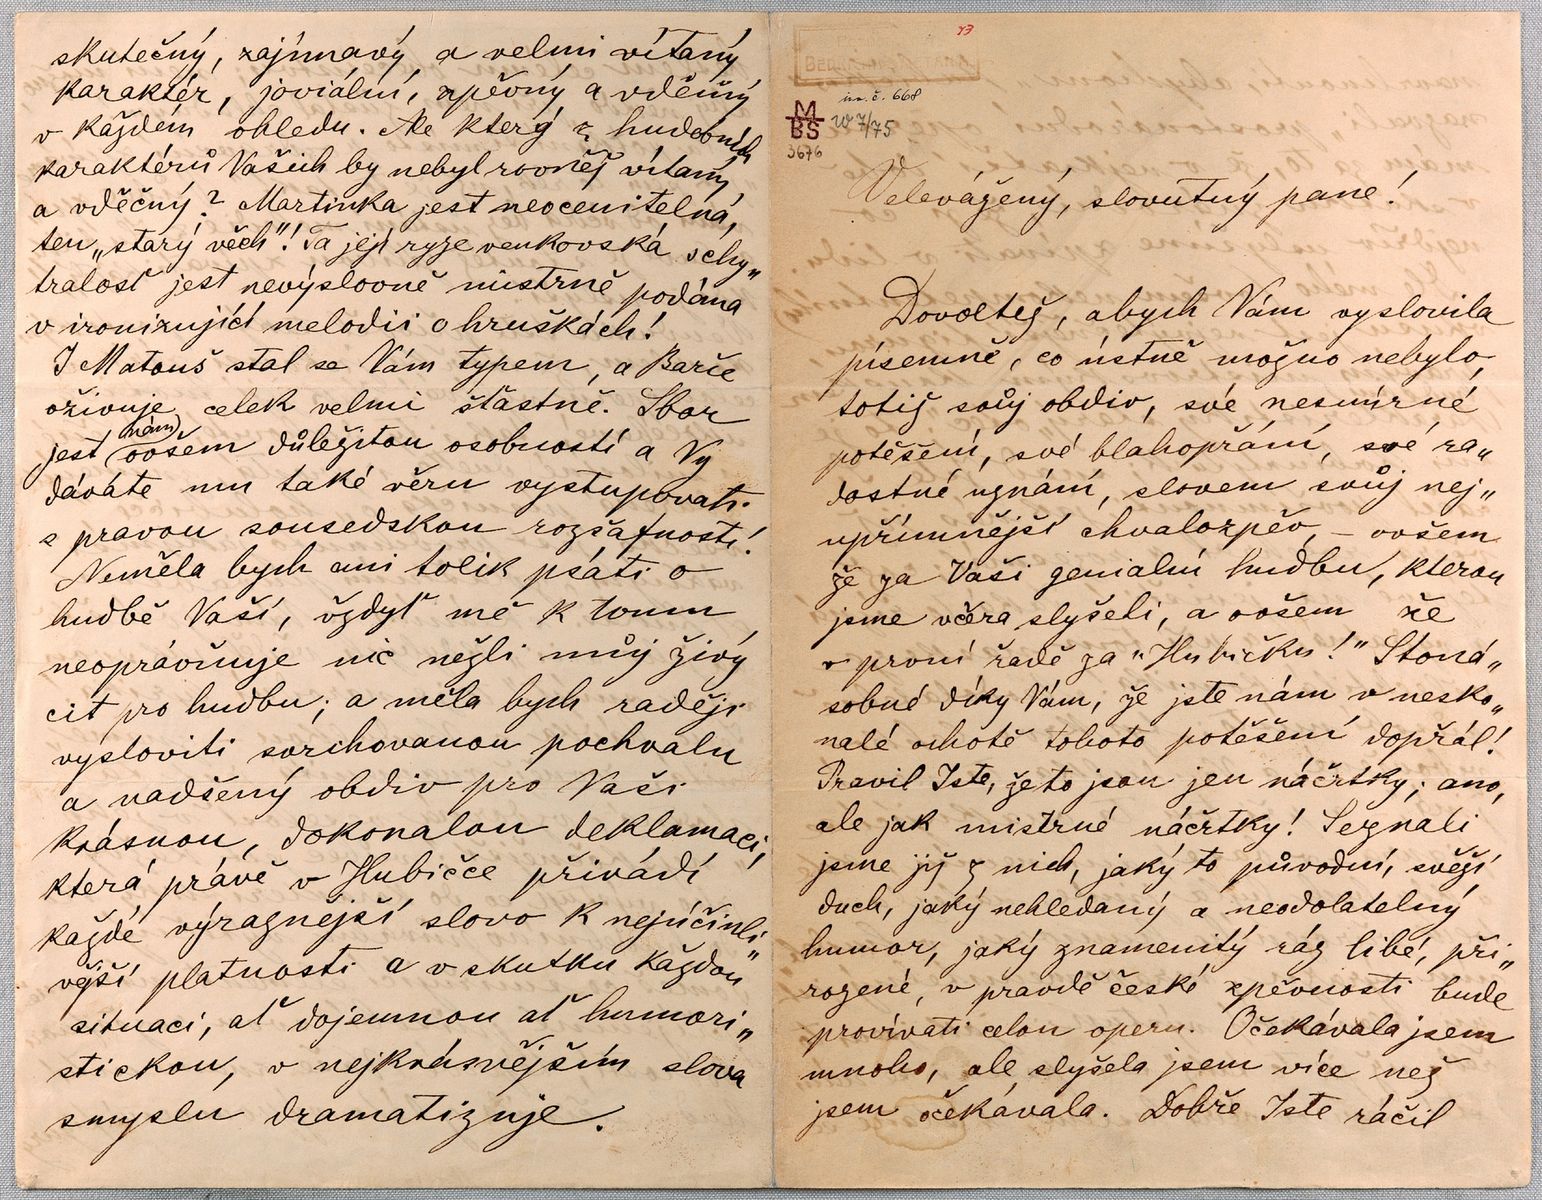 skutečný, zajímavý a velmi vítaný
karaktér, joviální, zpěvný a vděčný
v každém ohledu. Ale který z hudebních
karaktérů Vašich by nebyl rovněž vítaný
a vděčný? Martinka jest neocenitelná,
ten „starý věch"! Ta její ryze venkovská schy„
tralosť jest nevýslovně mistrně podána
v ironizující melodii o hruškách!
I Matouš stal se Vám typem, a Barče
oživuje celek velmi šťastně. Sbor
jest (nám) ovšem důležitou osobností a Vy
dáváte mu také věru vystupovati
s pravou sousedskou rozšafností!
Neměla bych ani tolik psáti o
hudbě Vaší, vždyť mě k tomu
neoprávňuje nic nežli můj živý
cit pro hudbu; a měla bych raději
vysloviti svrchovanou pochvalu
a nadšený obdiv pro Vaši
krásnou, dokonalou deklamaci,
která právě v Hubičce přivádí
každé výraznější slovo k nejúčinli„
vější platnosti a v skutku každou
situaci, ať dojemnou ať humori„
stickou, v nejkrásnějším slova
smyslu dramatizuje.
73
BEDŘICH SMETANA
M
BS
3676
inv. č. 668
W 7/75
Velevážený, slovutný pane!
Dovoltež, abych Vám vyslovila
písemně, co ústně možno nebylo,
totiž svůj obdiv, své nesmírné
potěšení, své blahopřání, své ra„
dostné uznání, slovem svůj nej„
upřímnější chvalozpěv, – ovšem
že za Vaši genialní hudbu, kterou
jsme včera slyšeli, a ovšem že
v první řadě za „Hubičku!" Stoná„
sobné díky Vám, že jste nám v nesko„
nalé ochotě tohoto potěšení dopřál!
Pravil Jste, že to jsou jen náčrtky; ano,
ale jak mistrné náčrtky! Seznali
jsme již z nich, jaký to původní, svěží
duch, jaký nehledaný a neodolatelný
humor, jaký znamenitý ráz libé, při„
rozené, v pravdě české zpěvnosti bude
provívati celou operu. Očekávala jsem
mnoho, ale slyšela jsem více než
jsem očekávala. Dobře Jste ráčil